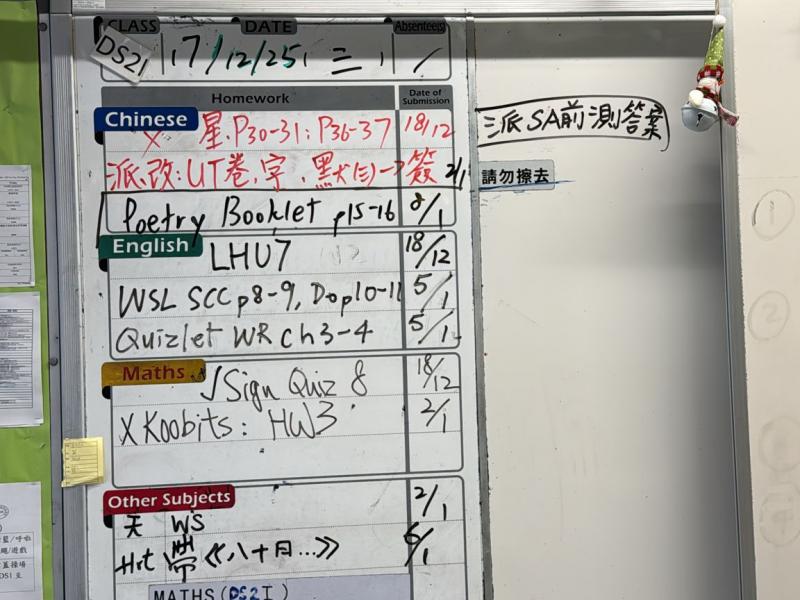 CLASS DATE Absentee(s)
DS2I 17/12/25 三 /
Homework Date of Submission
Chinese
X 星.P30-31; P36-37 18/12
派.改:UT卷.字.默 簽 2/1
Poetry Booklet p15-16 8/1
English
LHU7 18/12
WSL SCC p8-9, Do p10-11 5/1
Quizlet WR Ch3-4 5/1
Maths
√ Sign Quiz 8 18/12
X Koobits: HW3 2/1
Other Subjects
WS 2/1
常《八十月...》 6/1
MATHS (DS2I)
派SA前測答案
請勿擦去
1
2